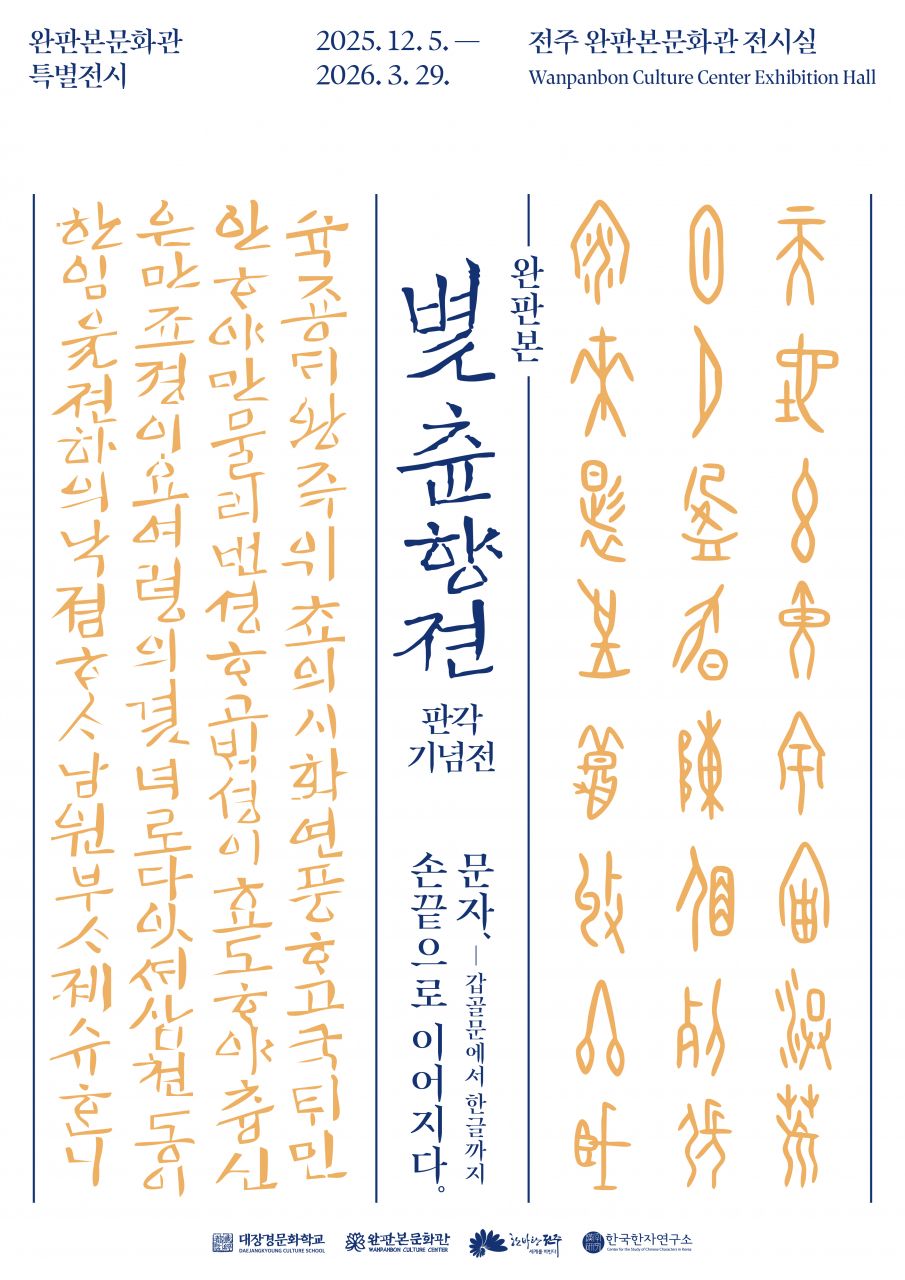 완판본문화관
특별전시
2025. 12. 5. —
2026. 3. 29.
전주 완판본문화관 전시실
Wanpanbon Culture Center Exhibition Hall
天地玄黃宇宙洪荒
日月盈昃辰宿列張
寒來暑往秋收冬藏
완판본
별츈향젼
판각
기념전
문자,
— 갑골문에서 한글까지
손끝으로 이어지다。
슉죵ᄃᆡ왕즉위초의시화연풍ᄒᆞ고국ᄐᆡ민
안ᄒᆞ야만물리번셩ᄒᆞ고ᄇᆡᆨ셩이효도ᄒᆞ야츙신
은만죠졍이요여령의녀로다잇셔삼쳔동이
한임젼하의낙졈ᄒᆞᄉᆞ남원부ᄉᆞ졔슈ᄒᆞ니
대장경문화학교
DAEJANGKYOUNG CULTURE SCHOOL
완판본문화관
WANPANBON CULTURE CENTER
한바탕 전주
세계를 비빈다
한국한자연구소
Center for the Study of Chinese Characters in Korea